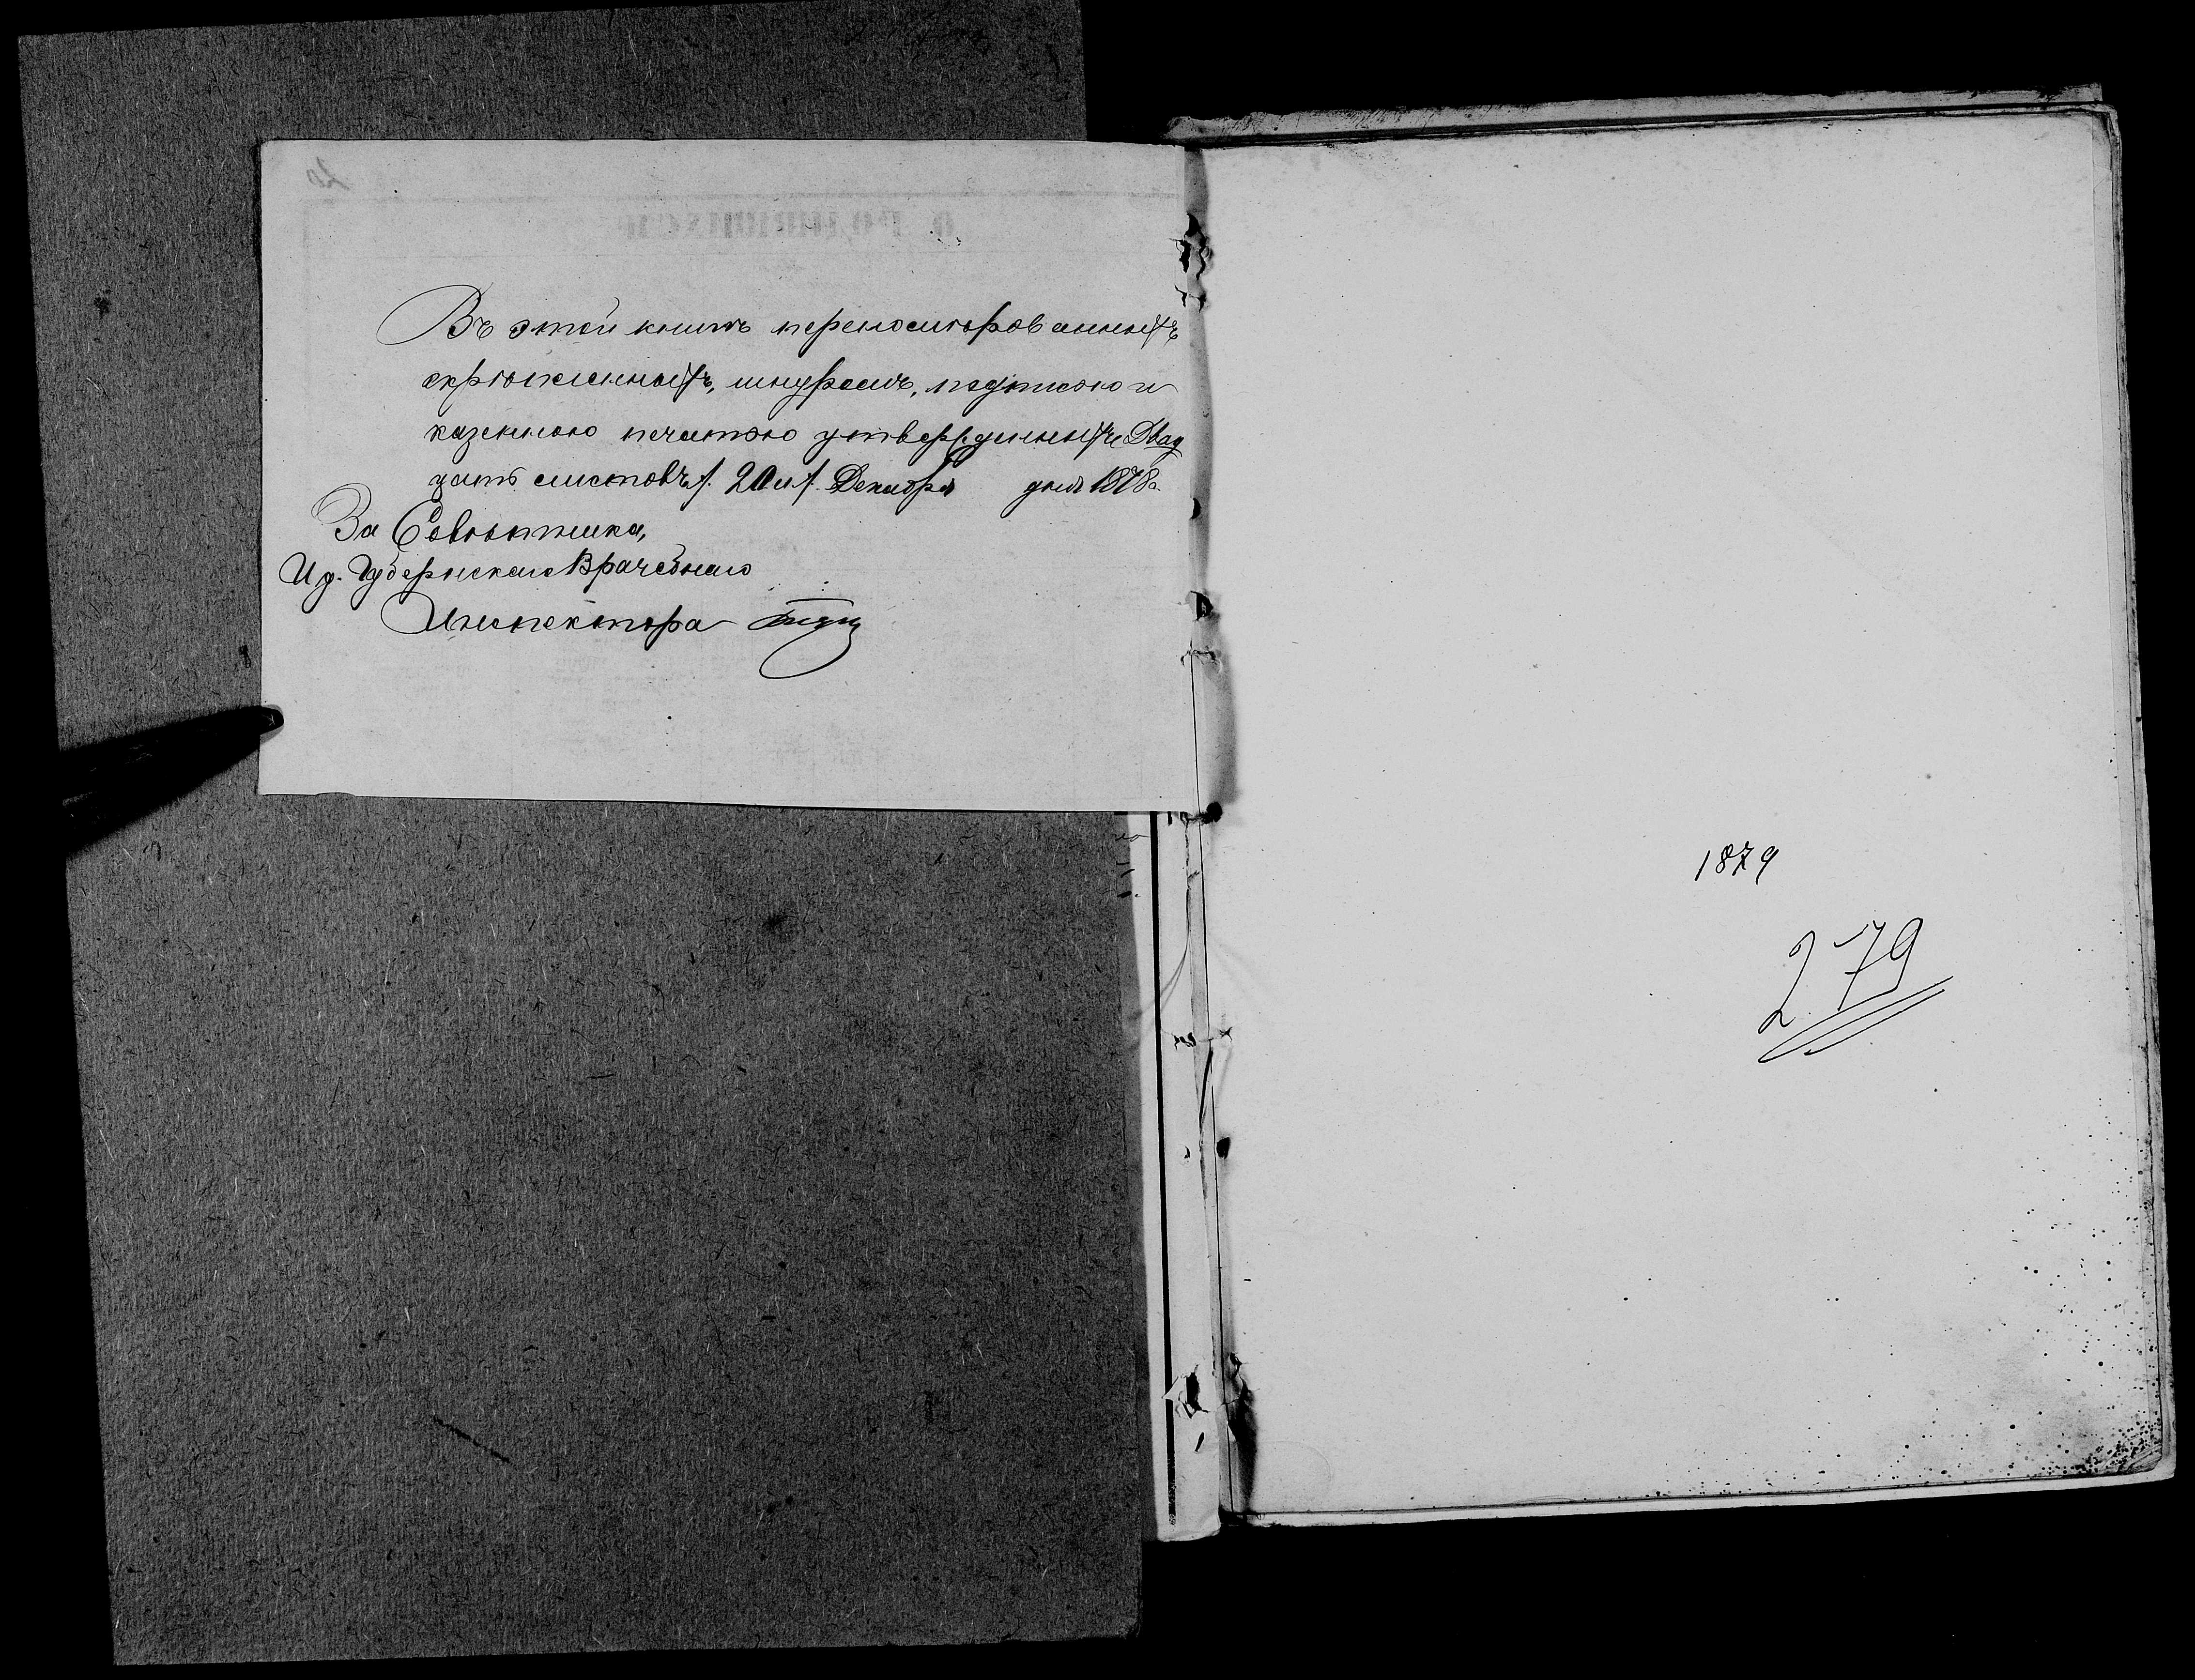 Въ этой книгѣ перенумерованныхъ
скрѣпленныхъ, шнуромъ, подписью и
казенною печатью утвержденныхъ Двад
цать листовъ /. 20 л /. Декабря дня 1878 г.
За Совѣтника,
И д. Губернскаго Врачебнаго
Инспектора
1879
279